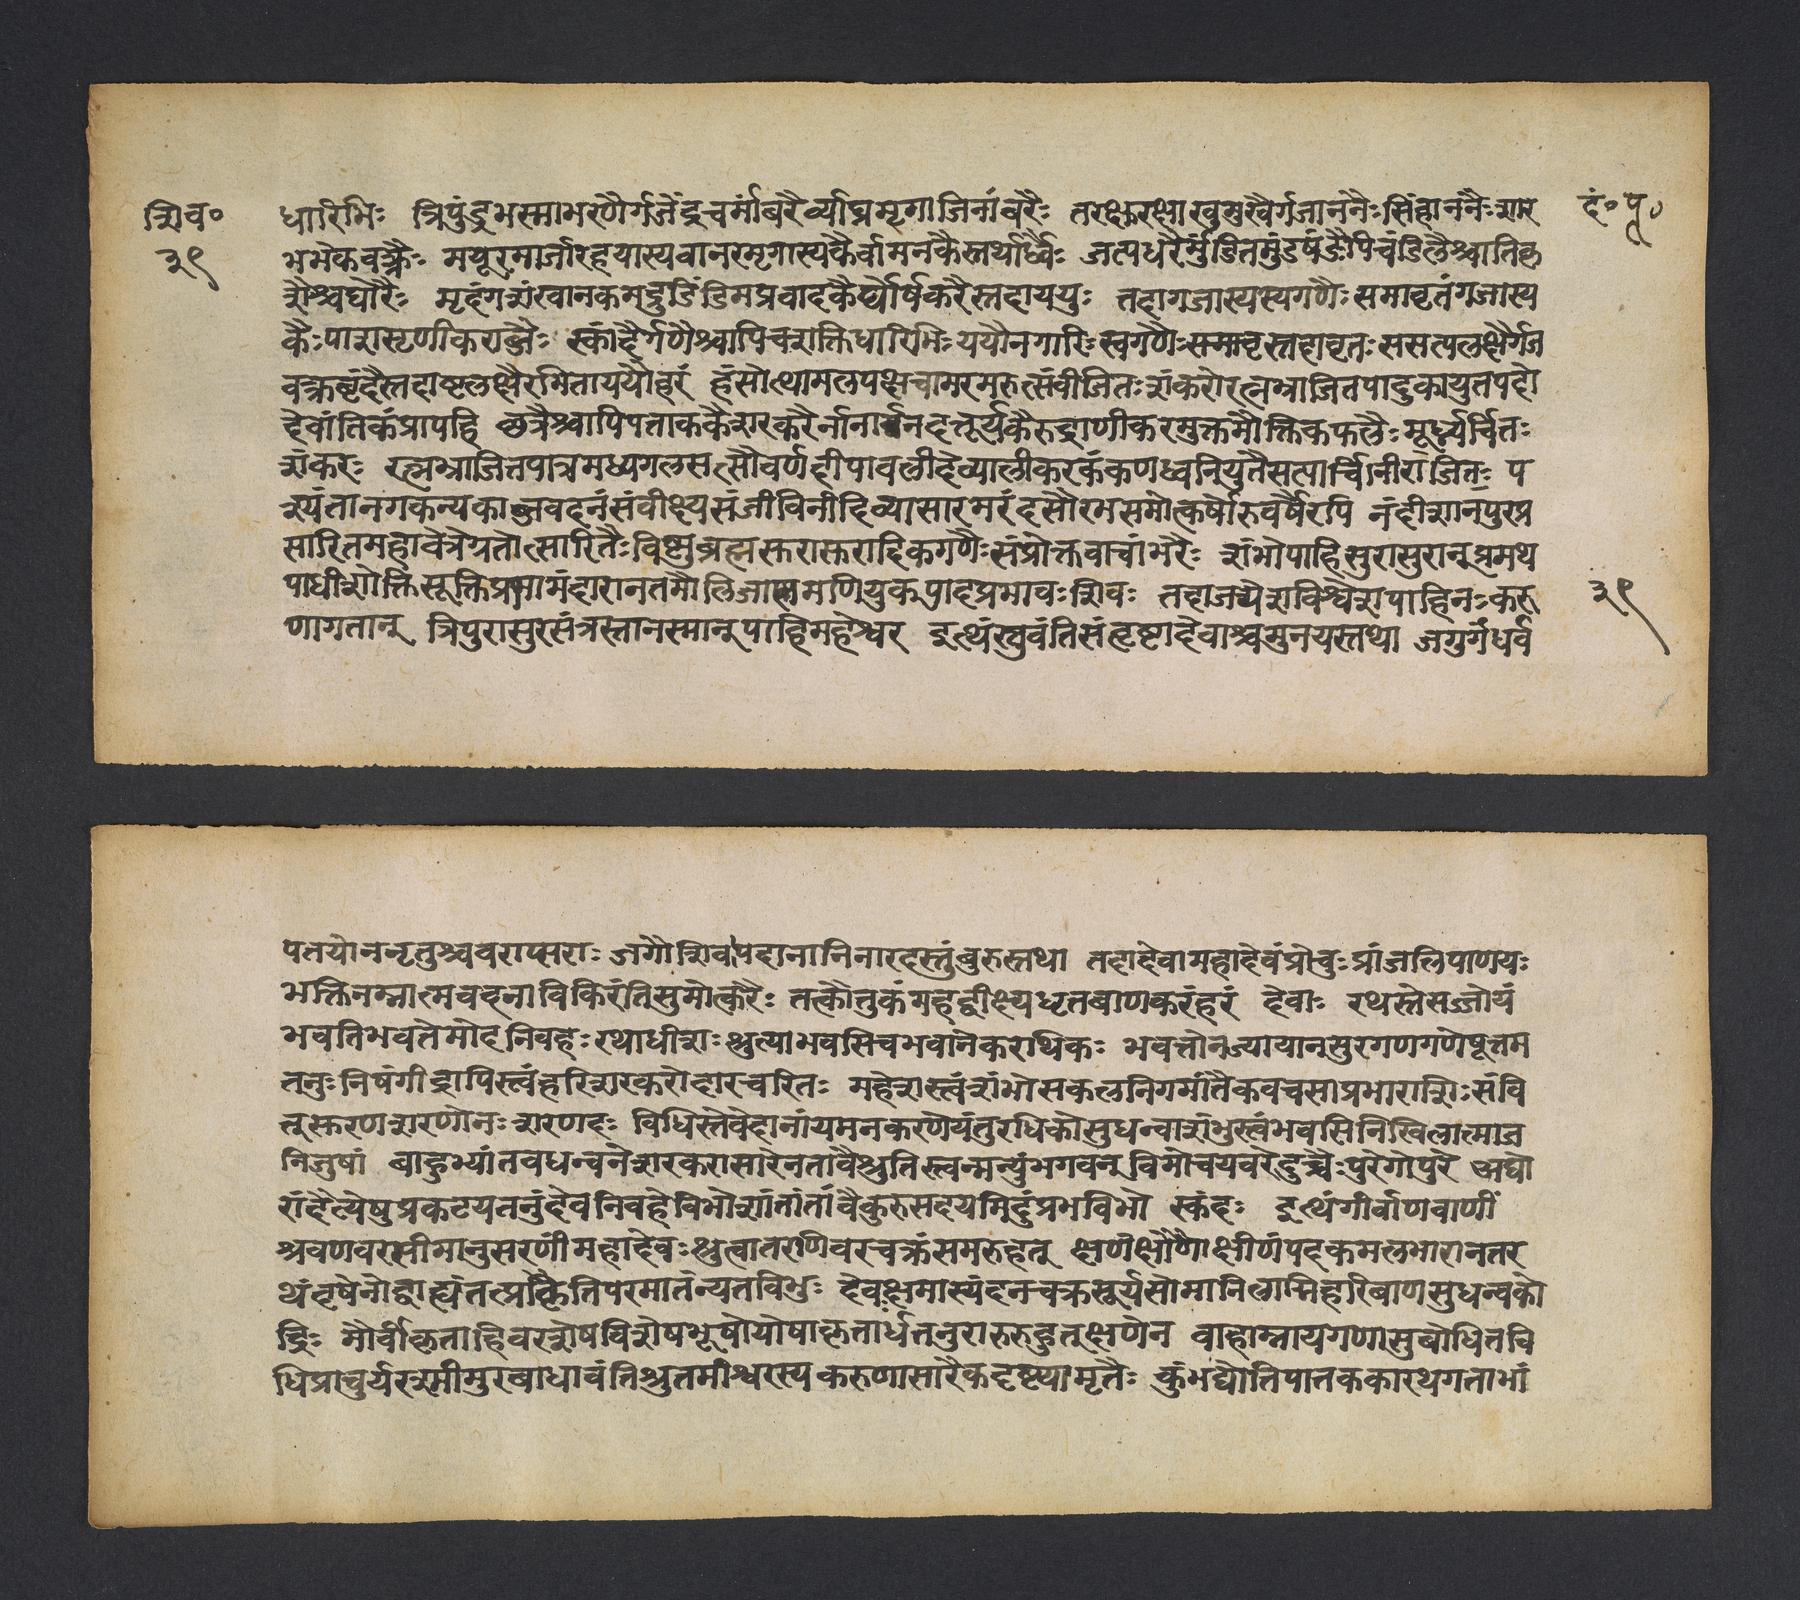 शिव॰
३९
दं॰पू॰
धारिभिः त्रिपुंड्रभस्माभरणैर्गजेंद्रचर्मांबरैर्व्याघ्रमृगाजिनांबरैः तरक्षुऋक्षाखुमुखैर्गजाननैः सिंहाननैः शर
भभेकवक्त्रैः मयूरमार्जारहयास्यवानरमृगास्यकैर्वामनकैस्तथोर्ध्वैः जटाधरैर्मुंडितमुंडषंडैपिचंडिलैश्चातिकृ
शैश्चघोरैः मृदंगशंखानकमड्डुडिंडिमप्रवादकैर्घोषकरैस्तदाययुः तदागजास्यस्यगणैः समावृतंगजास्य
कैः पाशसृणीकराब्जैः स्कांदैर्गणैश्चापिचशक्तिधारिभिः ययौनगारिः स्वगणैः समावृस्तदावृतः ससप्तलक्षैर्गज
वक्त्रवृंदैस्तदाष्टलक्षैरमिताययौहरं हंसोत्थामलपक्षचामरमरुत्संवीजितः शंकरोरत्नभ्राजितपादुकायुतपदो
देवांतिकंप्रापहि छत्रैश्चापिपताककैशरकरैर्नानार्घनदत्तूर्यकैरुद्राणीकरमुक्तमौक्तिकफलैः मूर्ध्न्यर्चितः
शंकरः रत्नभ्राजितपात्रमध्यगलसत्सौवर्णदीपावलीदेव्यालीकरकंकणध्वनियुतैसत्पार्चिनीराजितः प
श्यंतानगकन्यकाब्जवदनंसंवीक्ष्यसंजीविनीदिव्यासारमरंदसौरभसमोत्कर्षोरुवर्षैरपि नंदीशानपुरप्र
सारितमहावेत्रेरितोत्सारितैः विष्णुब्रह्मस्तराक्तरादिकगणैः संप्रोक्तवाचांभरैः शंभोपाहिसुरासुरान्प्रमथ
पाधीशोक्तिसूक्तिप्रभामंदारानतमौलिजालमणियुक्प्राहप्रभावः शिवः तदाजयेशविश्वेशपाहिनः करु
३९
णागतान् त्रिपुरासुरसंत्रस्तानस्मान्पाहिमहेश्वर इत्थंस्तुवंतिसंतृष्टादेवाश्चमुनयस्तथा जगुर्गंधर्व
पतयोननृतुश्चवराप्सराः जगौशिवपदानानिनारदस्तुंबुरुस्तथा तदादेवामहादेवंप्रोचुः प्रांजलिपाणयः
भक्तिनम्रात्मवदनाविकिरंतिसुमोत्करैः तत्कौतुकंमहद्वीक्ष्यधृतबाणकरंहरं देवाः रथस्तेसज्जोयं
भवतिभवतेमोदनिवहेः रथाधीशः श्रुत्याभवसिचभवानेकरथिकः भवत्तोनज्यायान्सुरगणगणेषूत्तम
तनुः निषंगीद्रापिस्त्वंहरिशरकरोदारचरितः महेशस्त्वंशंभोसकलनिगमांतैकवचसाप्रभाराशिः संवि
त्स्करणशरणोनः शरणदः विधिस्तेवेदानांयमनकरणेयंतुरधिकोसुधन्वाशंभुस्त्वंभवसिनिखिलात्माज
निजुषां बाहुभ्यांतवधन्वनेशरकरासारेनतावैश्रुतिस्त्वन्मन्युंभगवन्विमोचयवरेदुच्चैः पुरेगोपुरे अघो
रांदैत्येषुप्रकटयतनुंदेवनिवहेविभोशांतांतांवैकुरुसदयमिदुंप्रभविभो स्कंदः इत्थंगीर्वाणवाणीं
श्रवणवरसीमानुसरणीं महादेवः श्रुत्वातरणिवरचक्रंसमरुहत् क्षणंक्षोणी क्षीणंपदकमलभारानतर
थंवृषेनोद्वाह्यंतत्प्रकृैतिपरमातंन्यतविभुः देवः क्ष्मास्यंदनचक्रसूर्यसोमानिलाग्निहरिबाणसुधन्वको
द्रिः मौर्वीकृताहिवरशेषविशेषभूषोयोषाकृतार्धतनुरारुरुहुतुक्षणेन वाहाम्नायगणासुबोधितवि
धिप्राचुर्यरश्मीमुरबाधावंतिश्रुतमीश्वरस्यकरुणासारैकदृष्ट्यामृतैः कुंभद्यौतिपातककारथगताभां